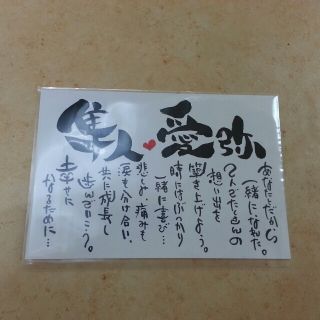 隼人❤愛弥
あなただから
一緒になれた。
たくさんの
想い出を
築き上げよう。
時にはぶつかり
一緒に喜び…
悲しみ、痛みも
涙も分け合い、
共に成長し
歩んで行こう。
幸せに
なるために…